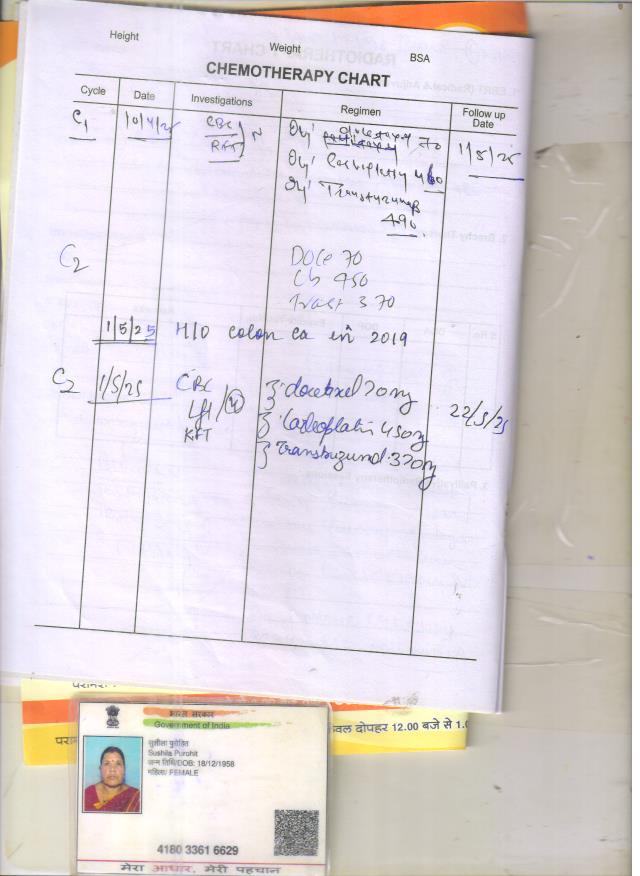 Height Weight BSA
CHEMOTHERAPY CHART
Cycle Date Investigations Regimen Follow up Date
C1 10/4/25 CBC N Inj docetaxel 70 1/5/25
RFT Inj Carboplatin
Inj Trastuzumab
490
C2 DOCE 70
Cb 450
Trast 370
1/5/25 H/O colon ca in 2019
C2 1/5/25 CBC docetaxel 70mg 22/5/25
LFT Carboplatin 450mg
KFT 370mg
परामर्श
केवल दोपहर 12.00 बजे से 1.0
भारत सरकार
Government of India
सुशीला पुरोहित
Sushila Purohit
जन्म तिथि/DOB: 18/12/1958
महिला/ FEMALE
4180 3361 6629
मेरा आधार, मेरी पहचान